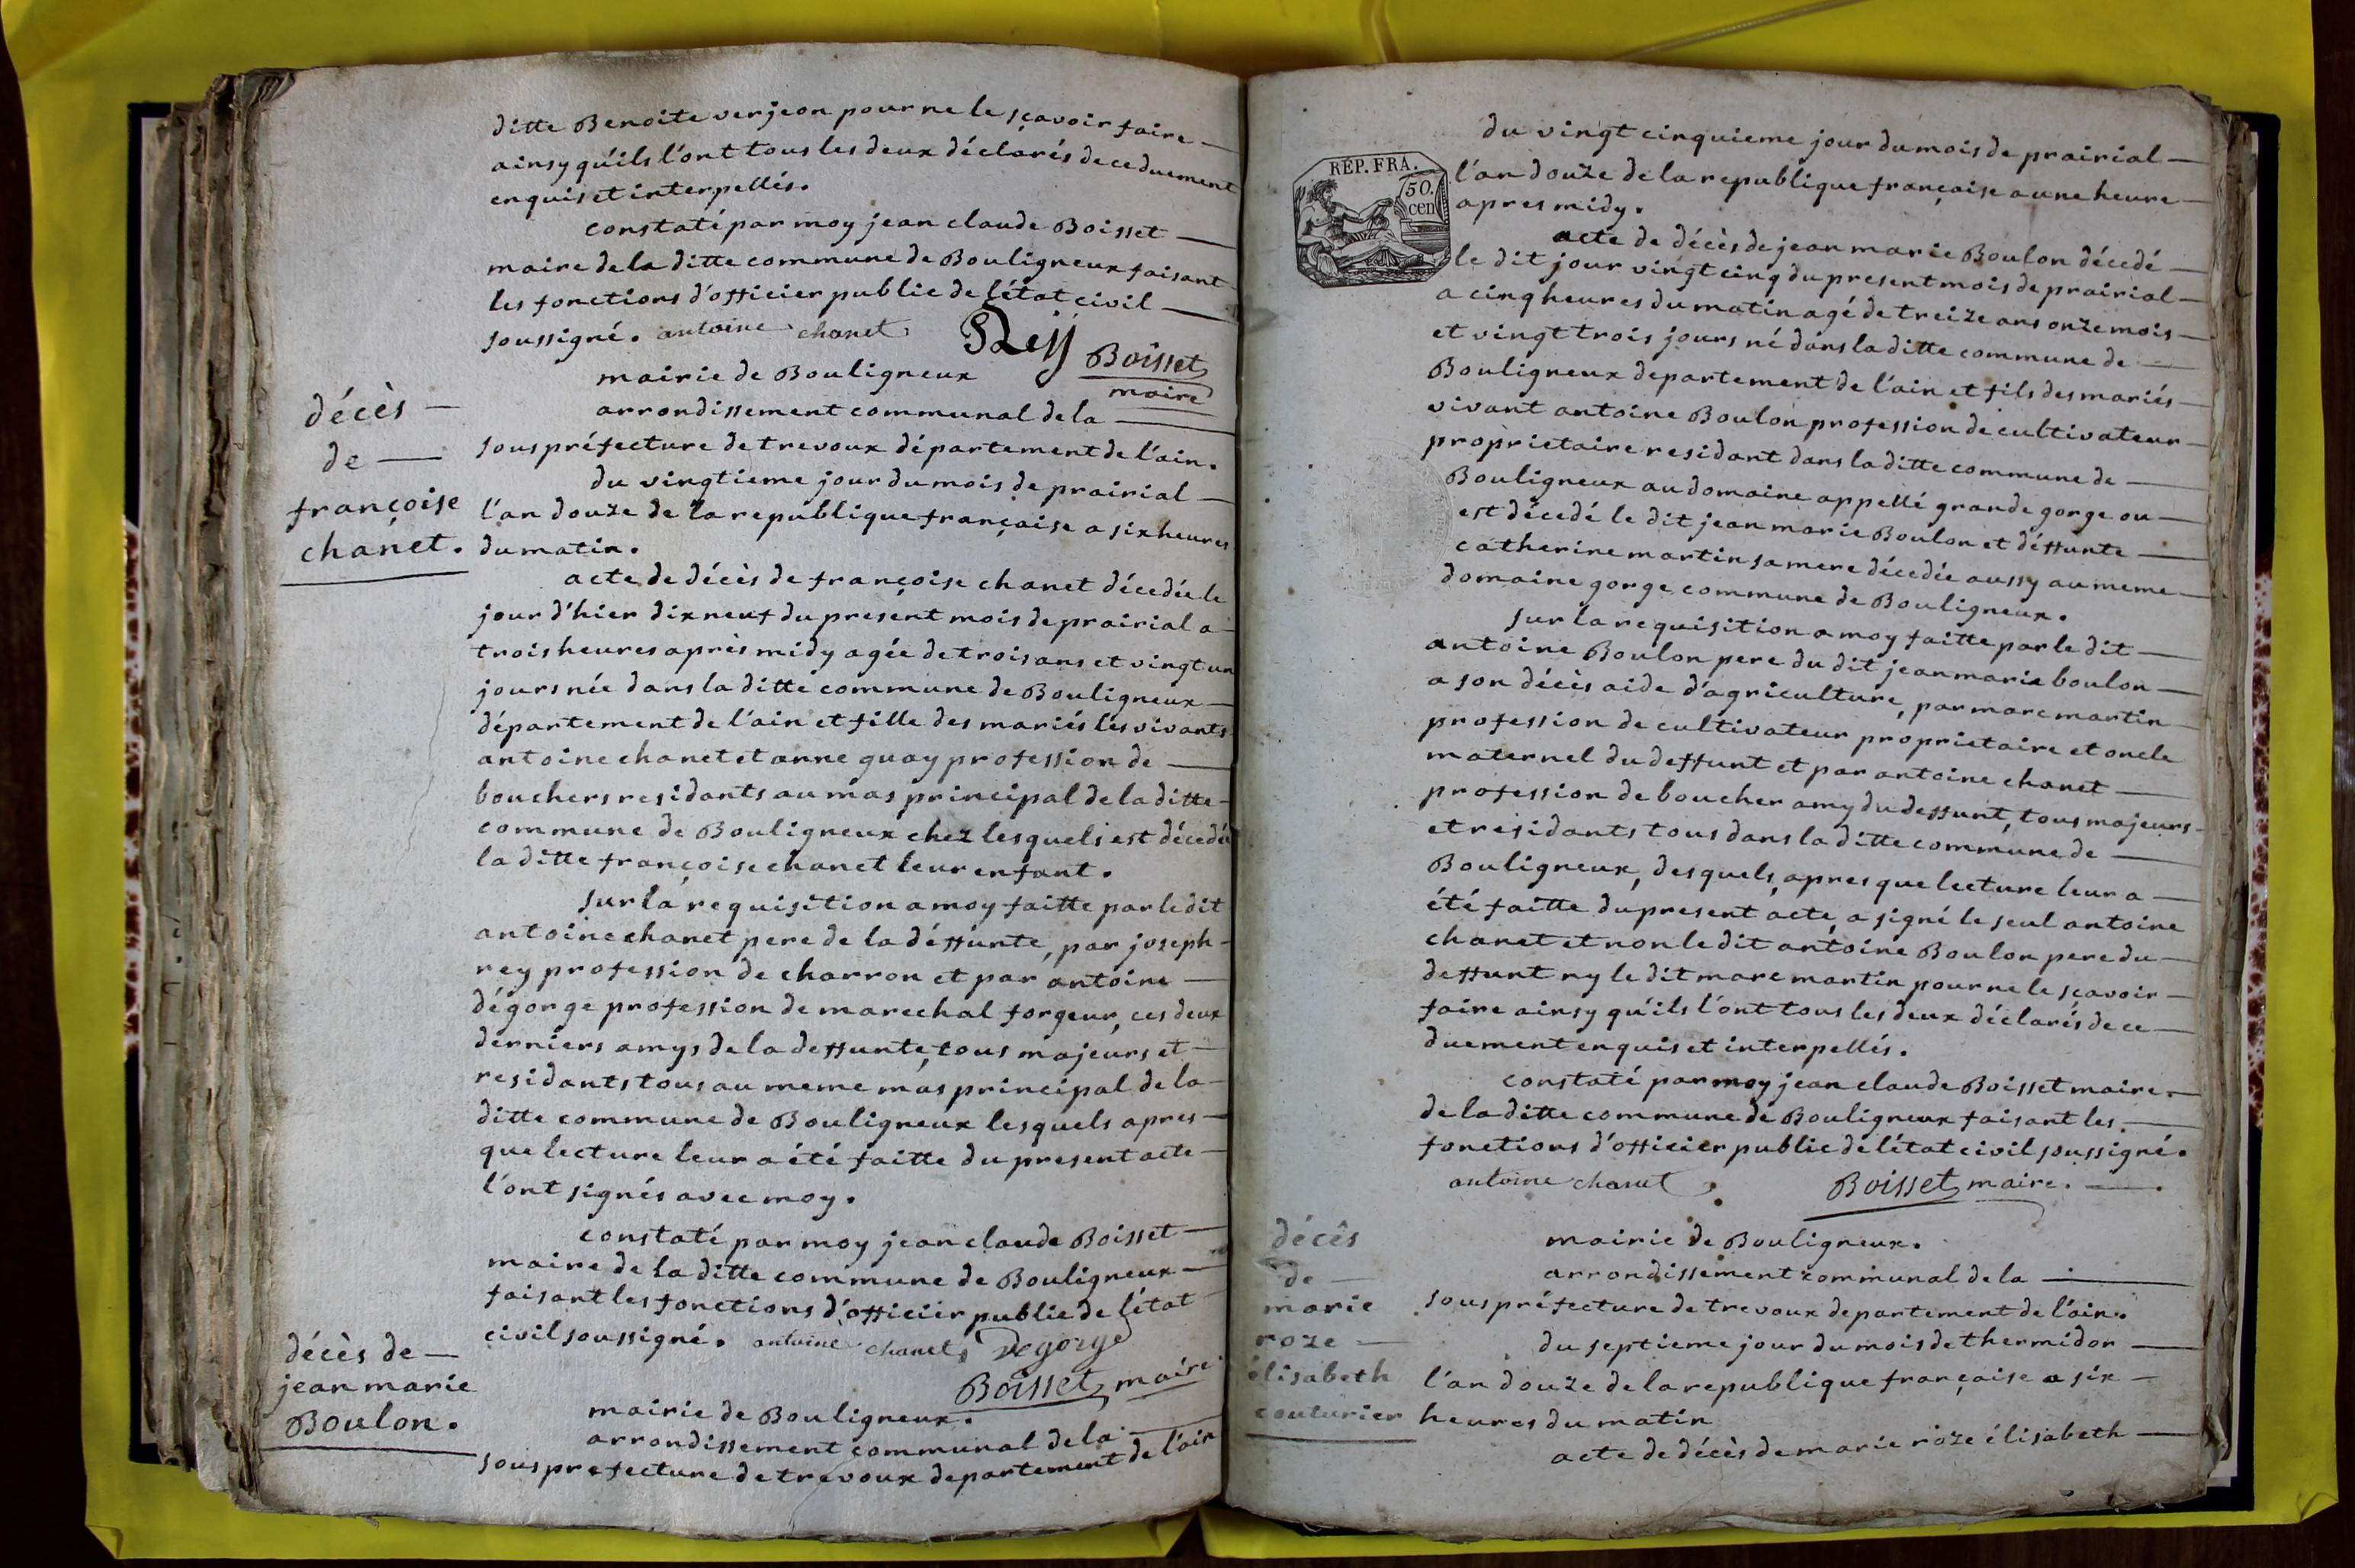 ditte Benoite verjeon pour ne le sçavoir faire
ainsy qu'ils l'ont tous les deux déclarés de ce duement
enquis et interpellés.
constaté par moy jean claude Boisset
maire de la ditte commune de Bouligneux faisant
les fonctions d'officier public de l'état civil
soussigné. antoine chanet
Boisset
maire
mairie de Bouligneux
arrondissement communal de la
sous préfecture de trevoux département de l'ain.
décès
de
françoise
chanet.
du vingtieme jour du mois de prairial
l'an douze de la republique française a six heures
du matin.
acte de décès de françoise chanet décedée le
jour d'hier dix neuf du present mois de prairial a
trois heures après midy agée de trois ans et vingt un
jours née dans la ditte commune de Bouligneux
département de l'ain et fille des mariés les vivants
antoine chanet et anne guay profession de
bouchers residants au mas principal de la ditte
commune de Bouligneux chez lesquels est décedée
la ditte françoise chanet leur enfant.
sur la requisition a moy faitte par le dit
antoine chanet pere de la déffunte, par joseph
rey profession de charron et par antoine
dégorge profession de marechal forgeur, ces deux
derniers amys de la deffunte, tous majeurs et
residants tous au meme mas principal de la
ditte commune de Bouligneux lesquels apres
que lecture leur a été faitte du present acte
l'ont signés avec moy.
constaté par moy jean claude Boisset
maire de la ditte commune de Bouligneux
faisant les fonctions d'officier public de l'état
civil soussigné. antoine chanet Degorge
Boisset maire
décès de
jean marie
Boulon.
mairie de Bouligneux.
arrondissement communal de la
sous prefecture de trevoux departement de l'ain
REP. FRA.
50.
cen
du vingt cinquieme jour du mois de prairial
l'an douze de la republique française a une heure
apres midy.
acte de décès de jean marie Boulon décedé
le dit jour vingt cinq du present mois de prairial
a cinq heures du matin agé de treize ans onze mois
et vingt trois jours né dans la ditte commune de
Bouligneux departement de l'ain et fils des mariés
vivant antoine Boulon profession de cultivateur
proprietaire residant dans la ditte commune de
Bouligneux au domaine appellé grande gorge ou
est décedé le dit jean marie Boulon et déffunte
catherine martin sa mere décedée aussy au meme
domaine gorge commune de Bouligneux.
sur la requisition a moy faitte par le dit
antoine Boulon pere du dit jean marie boulon
a son décès aide d'agriculture, par marc martin
profession de cultivateur proprietaire et oncle
maternel du deffunt et par antoine chanet
profession de boucher amy du deffunt, tous majeurs
et residants tous dans la ditte commune de
Bouligneux, desquels, apres que lecture leur a
été faitte du present acte, a signé le seul antoine
chanet et non le dit antoine Boulon pere du
deffunt ny le dit marc martin pour ne le sçavoir
faire ainsy qu'ils l'ont tous les deux déclarés de ce
duement enquis et interpellés.
constaté par moy jean claude Boisset maire
de la ditte commune de Bouligneux faisant les
fonctions d'officier public de l'état civil soussigné.
antoine chanet Boisset maire.
décês
de
marie
roze
élisabeth
couturier
mairie de Bouligneux.
arrondissement communal de la
sous préfecture de trevoux departement de l'ain.
du septieme jour du mois de thermidor
l'an douze de la republique française a six
heures du matin
acte de décès de marie roze élisabeth